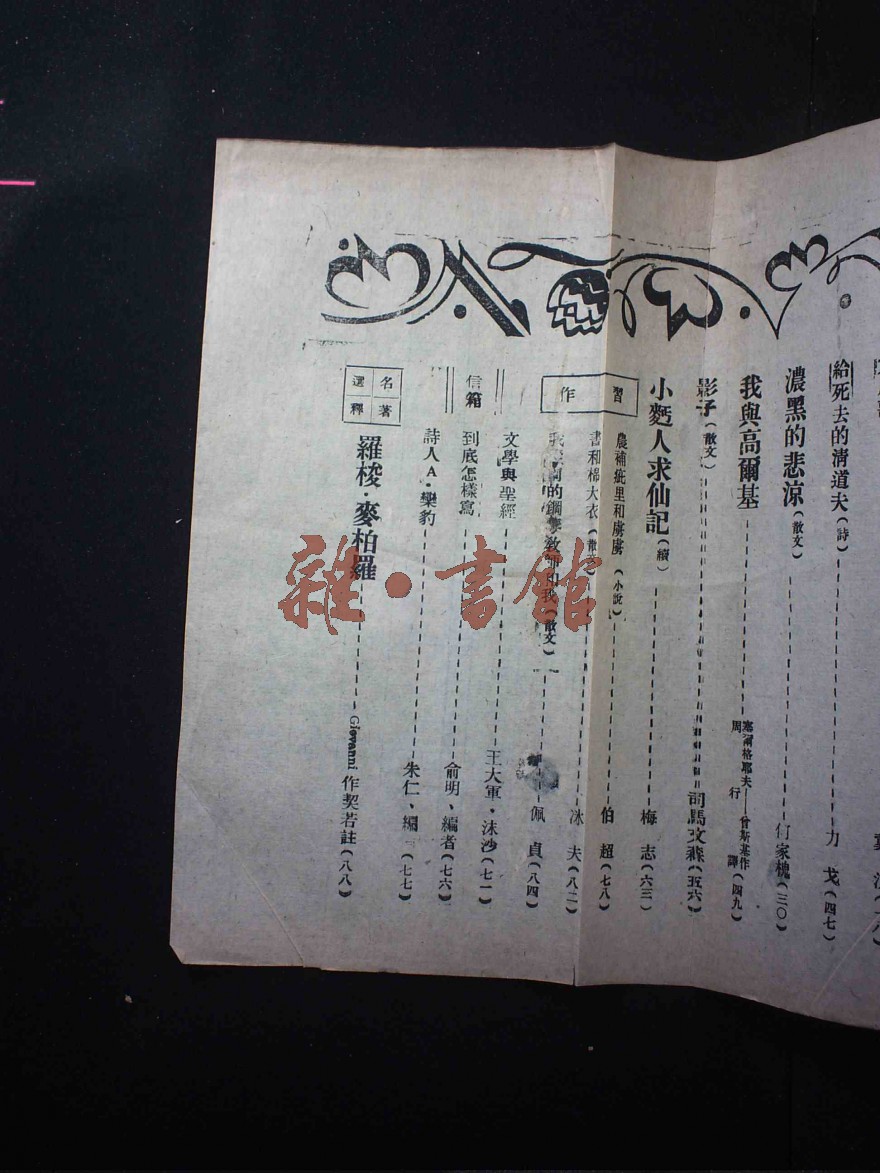 給死去的清道夫(詩)力戈(四七)
濃黑的悲涼(散文)何家槐(三〇)
我與高爾基 塞爾格耶夫——曾斯基作 周行譯(四九)
影子(散文)司馬文森(五六)
小麪人求仙記(續)梅志(六三)
習作
農補疵里和虜虜(小說)伯超(七八)
書和棉大衣(散文)冰夫(八二)
的鋼筆教師和我(散文)佩貞(八四)
信箱
文學與聖經 王大軍·沫沙(七一)
到底怎樣寫 俞明、編者(七六)
詩人A·欒豹 朱仁、編(七七)
名著選釋
羅梭·麥柏羅 Giovanni作契若註(八八)
雜·書館